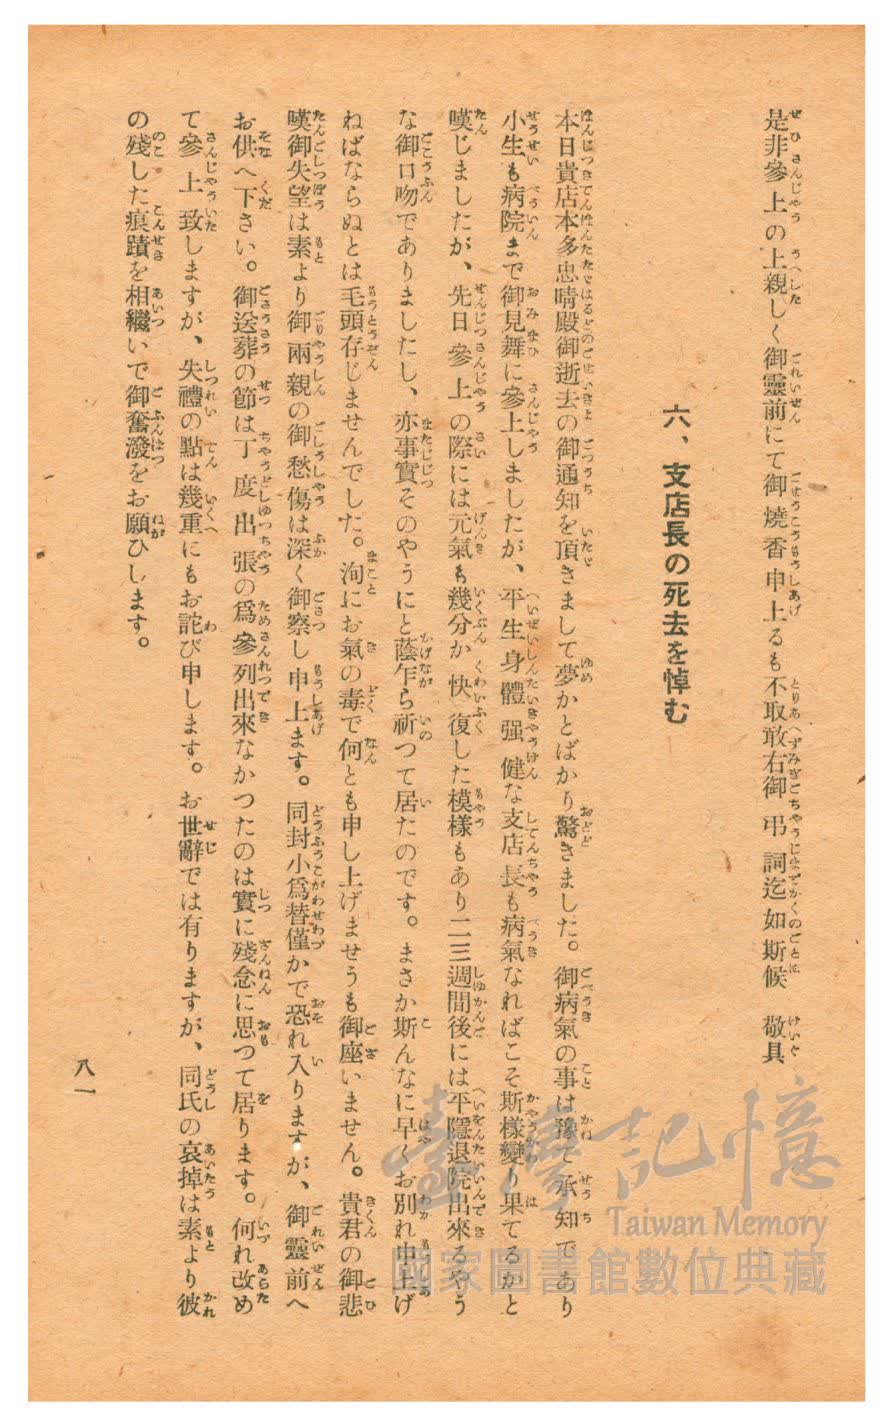 是非參上の上親しく御靈前にて御燒香申上るも不取敢右御弔詞迄如斯候　敬具
六、支店長の死去を悼む
本日貴店本多忠晴殿御逝去の御通知を頂きまして夢かとばかり驚きました。御病氣の事は豫て承知であり
小生も病院まで御見舞に參上しましたが、平生身體强健な支店長も病氣なればこそ斯樣變り果てるかと
嘆じましたが、先日參上の際には元氣も幾分か快復した模樣もあり二三週間後には平隱退院出來るやう
な御口吻でありましたし、亦事實そのやうにと蔭乍ら祈つて居たのです。まさか斯んなに早くお別れ申上げ
ねばならぬとは毛頭存じませんでした。洵にお氣の毒で何とも申し上げませうも御座いません。貴君の御悲
嘆御失望は素より御兩親の御愁傷は深く御察し申上ます。同封小爲替僅かで恐れ入りますが、御靈前へ
お供へ下さい。御送葬の節は丁度出張の爲參列出來なかつたのは實に殘念に思つて居ります。何れ改め
て參上致しますが、失禮の點は幾重にもお詫び申します。お世辭では有りますが、同氏の哀掉は素より彼
の殘した痕蹟を相繼いで御奮潑をお願ひします。
八一
臺灣記憶
Taiwan Memory
國家圖書館數位典藏